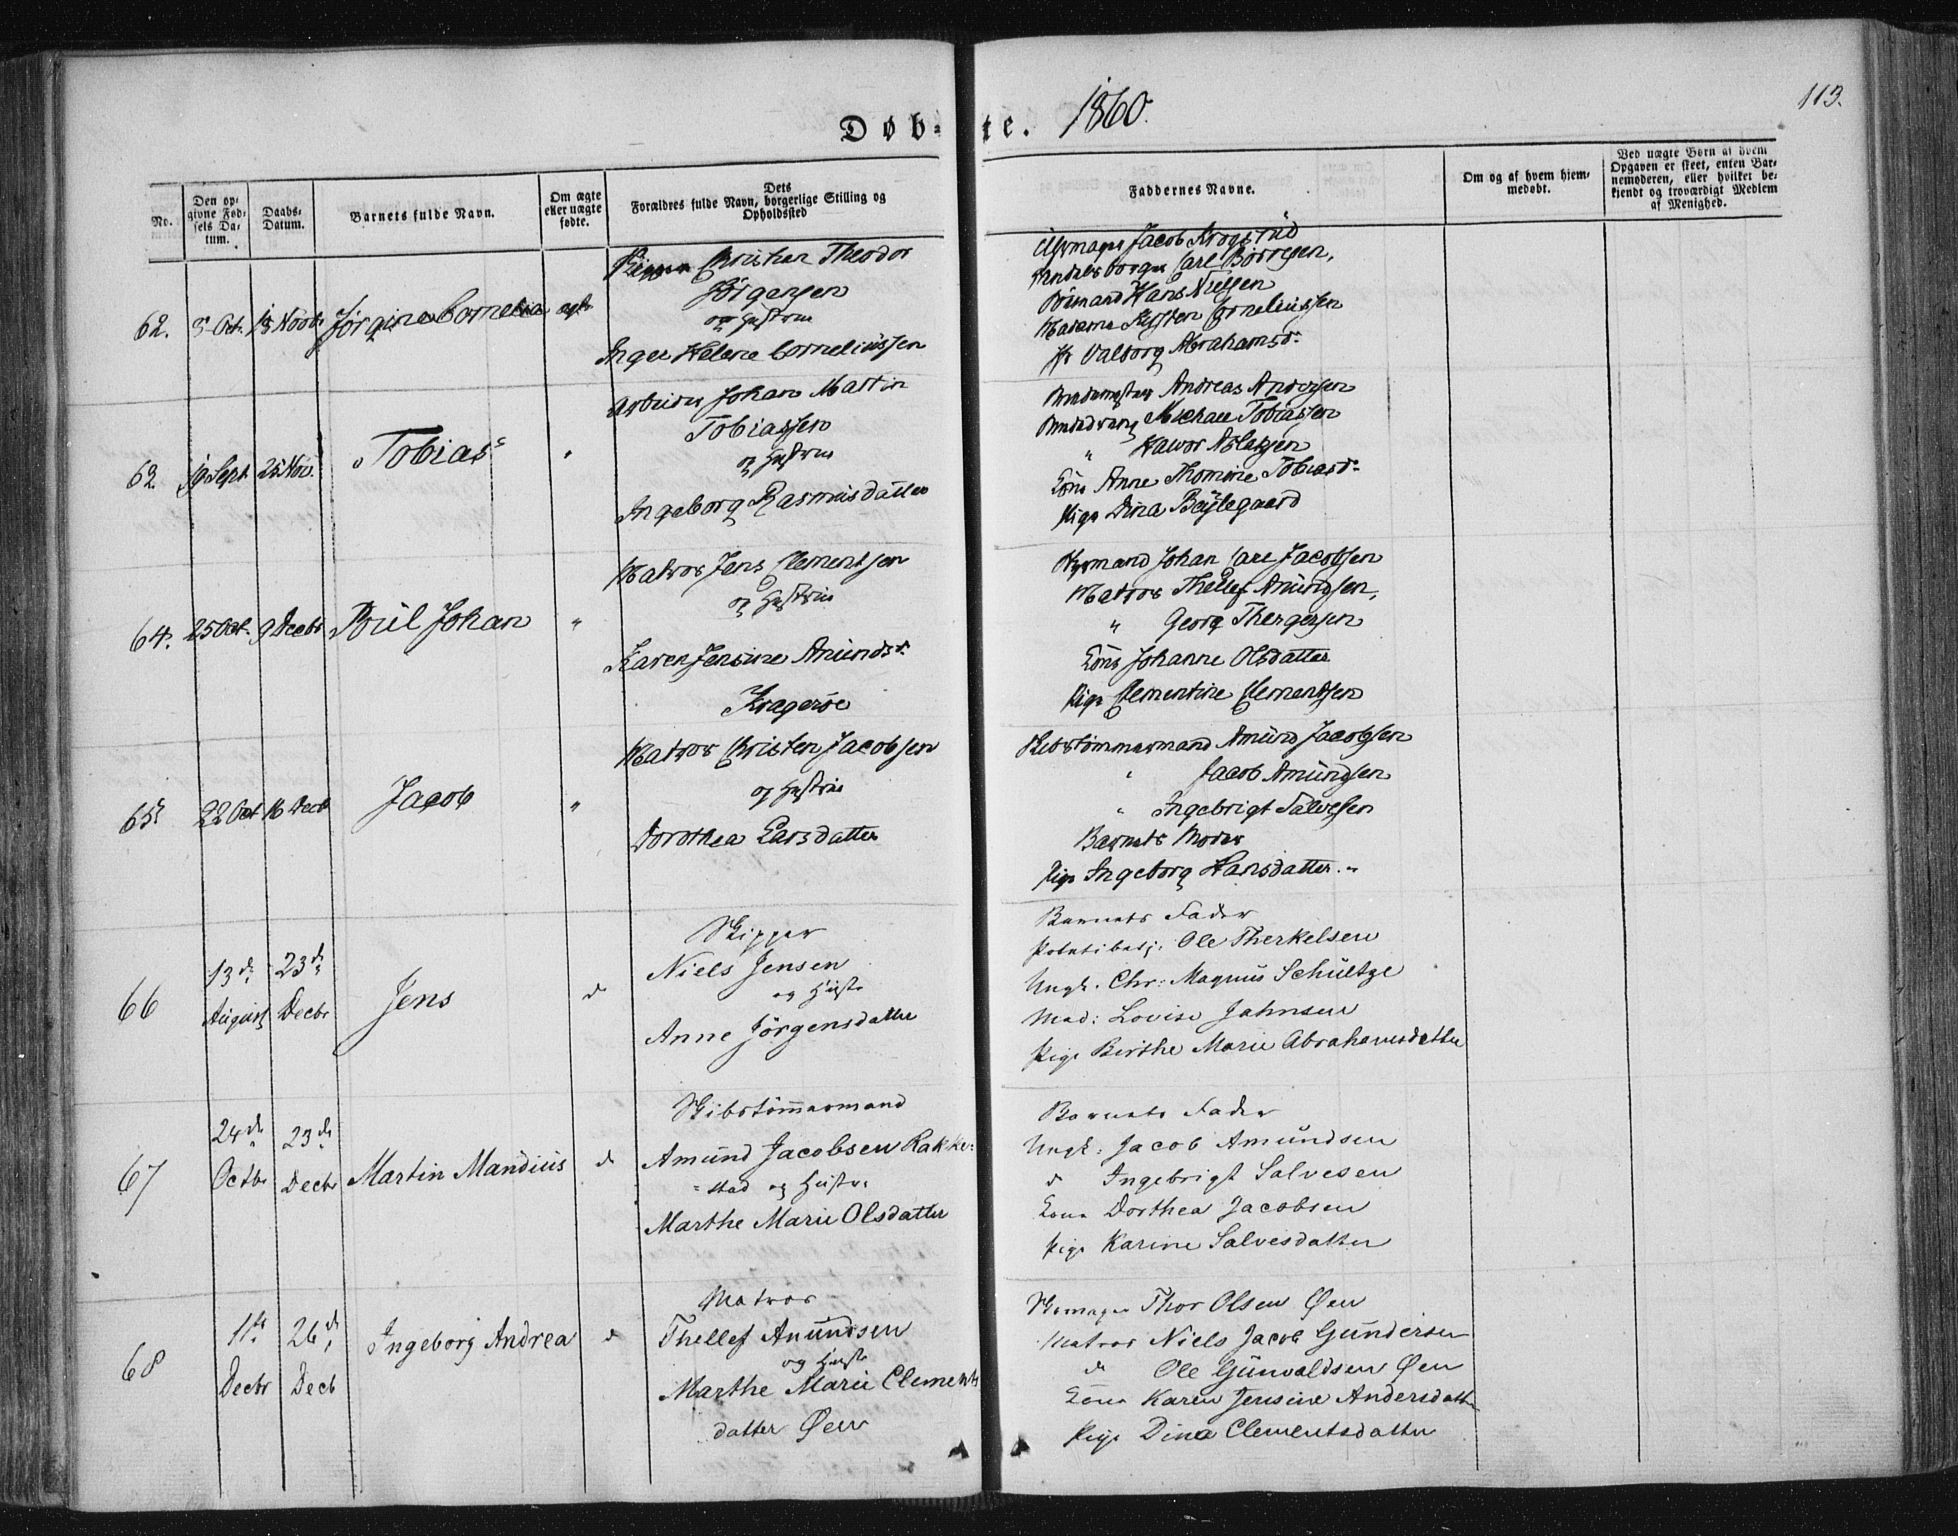 Døb-te. 1860.
113.
No.
Den op-
givne Fød-
sels Da-
tum.
Daabs-
Datum.
Barnets fulde Navn.
Om ægte
eller uægte
fødte.
Dets
Forældres fulde Navn, borgerlige Stilling og
Opholdssted
Faddernes Navne.
Om og af hvem hjem-
medøbt.
Ved uægte Børn af hvem
Opgaven er skeet, enten Bar-
nemoderen, eller hvilket be-
kjendt og troværdigt Medlem
af Menighed.
62.
5 Oct.
18 Novbr
Jørgine Cornelia
ægte
Christian Theodor
Jörgensen
og Hustrue
Inger Helene Corneliussen
Jacob Krogsrud
Carl Börresen,
Hans Nielsen
Madame Kirsten Corneliussen
Valborg Abrahamsd.
62
19 Sept
25 Nov.
Tobias
"
Arbeider Johan Martin
Tobiassen
og Hustrue
Ingeborg Rasmusdatter
Andreas Andersen
Michael Tobiassen
" Halvor Aslaksen
Kone Anne Thomine Tobiasd.
Pige Dina Böylegaard
64.
25 Oct.
9 Decbr
Poul Johan
"
Matros Jens Clementsen
og Hustrue
Karen Jensine Amundsd.
Kragerøe
Styrmand Johan Carl Jacobsen
Matros Thellef Amundsen,
" Georg Thergersen
Kone Johanne Olsdatter
Pige Clementine Clementsen
65
22 Oct
16 Decb
Jacob
"
Matros Christen Jacobsen
og Hustrue
Dorothea Larsdatter
Skibstømmermand Amund Jacobsen
" Jacob Amundsen
" Ingebrigt Salvesen
Barnets Moder
Pige Ingeborg Hansdatter.
66
13de
August
23de
Decbr
Jens
d
Skipper
Niels Jensen
og Hust
Anne Jörgensdatter
Barnets Fader
Ole Therkelsen
Ungk. Chr: Magnus Schultze
Mad: Lovise Jahnsen
Pige Birthe Marie Abrahamsdatter
67
24de
Octbr
23de
Decbr
Martin Mandius
d
Skibstömmermand
Amund Jacobsen Rakke-
-stad og Hustr.
Marthe Marie Olsdatter
Barnets Fader
Ungk. Jacob Amundsen
d Ingebrigt Salvesen
Kone Dorthea Jacobsen
Pige Karine Salvesdatter
68
11te
Decbr
26de
Decb
Ingeborg Andrea
d
Matros
Thellef Amundsen
og Hust
Marthe Marie Clements
datter Øen
Skomager Thor Olsen Øen
Matros Niels Jacob Gundersen
d Ole Gunvaldsen Øen
Kone Karen Jensine Andersdatter
Pige Dina Clementsdatter